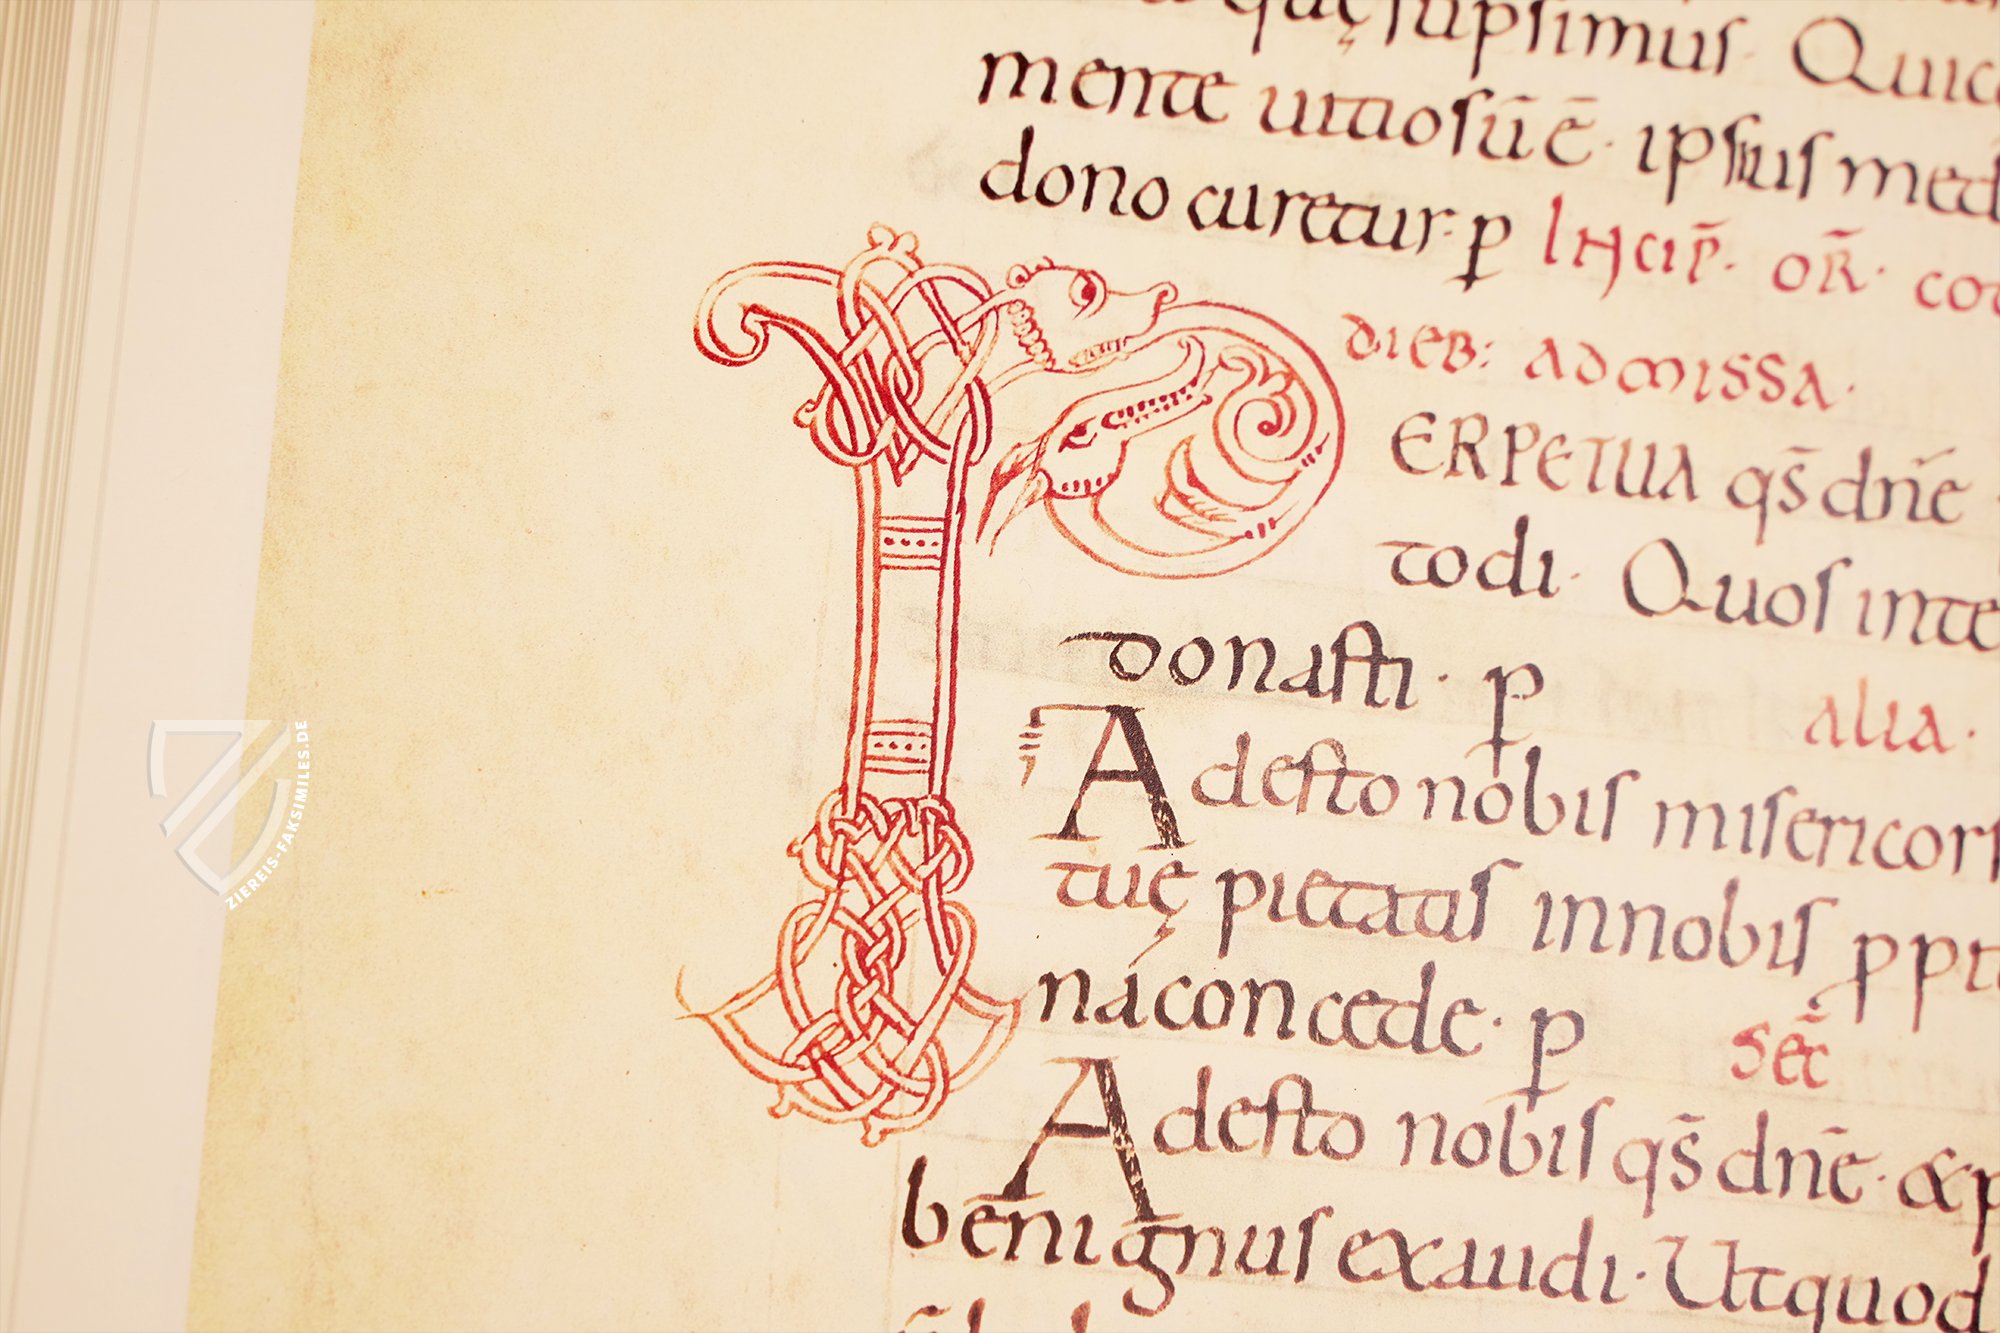 quę sup simus. Quic
mente uitiosū ē. ipsius med
dono curetur. p INCIP̄. OR̄. COT
DIEB: ADMISSA.
PERPETUA qs̄ dn̄e
todi. Quos inte
donasti. p
alia.
Adesto nobis misericors
tuę pietatis in nobis ppit
na concede. p
sec̄
Adesto nobis qs̄ dn̄e. & p
benignus exaudi. Ut quod
ZIEREIS-FAKSIMILES.DE